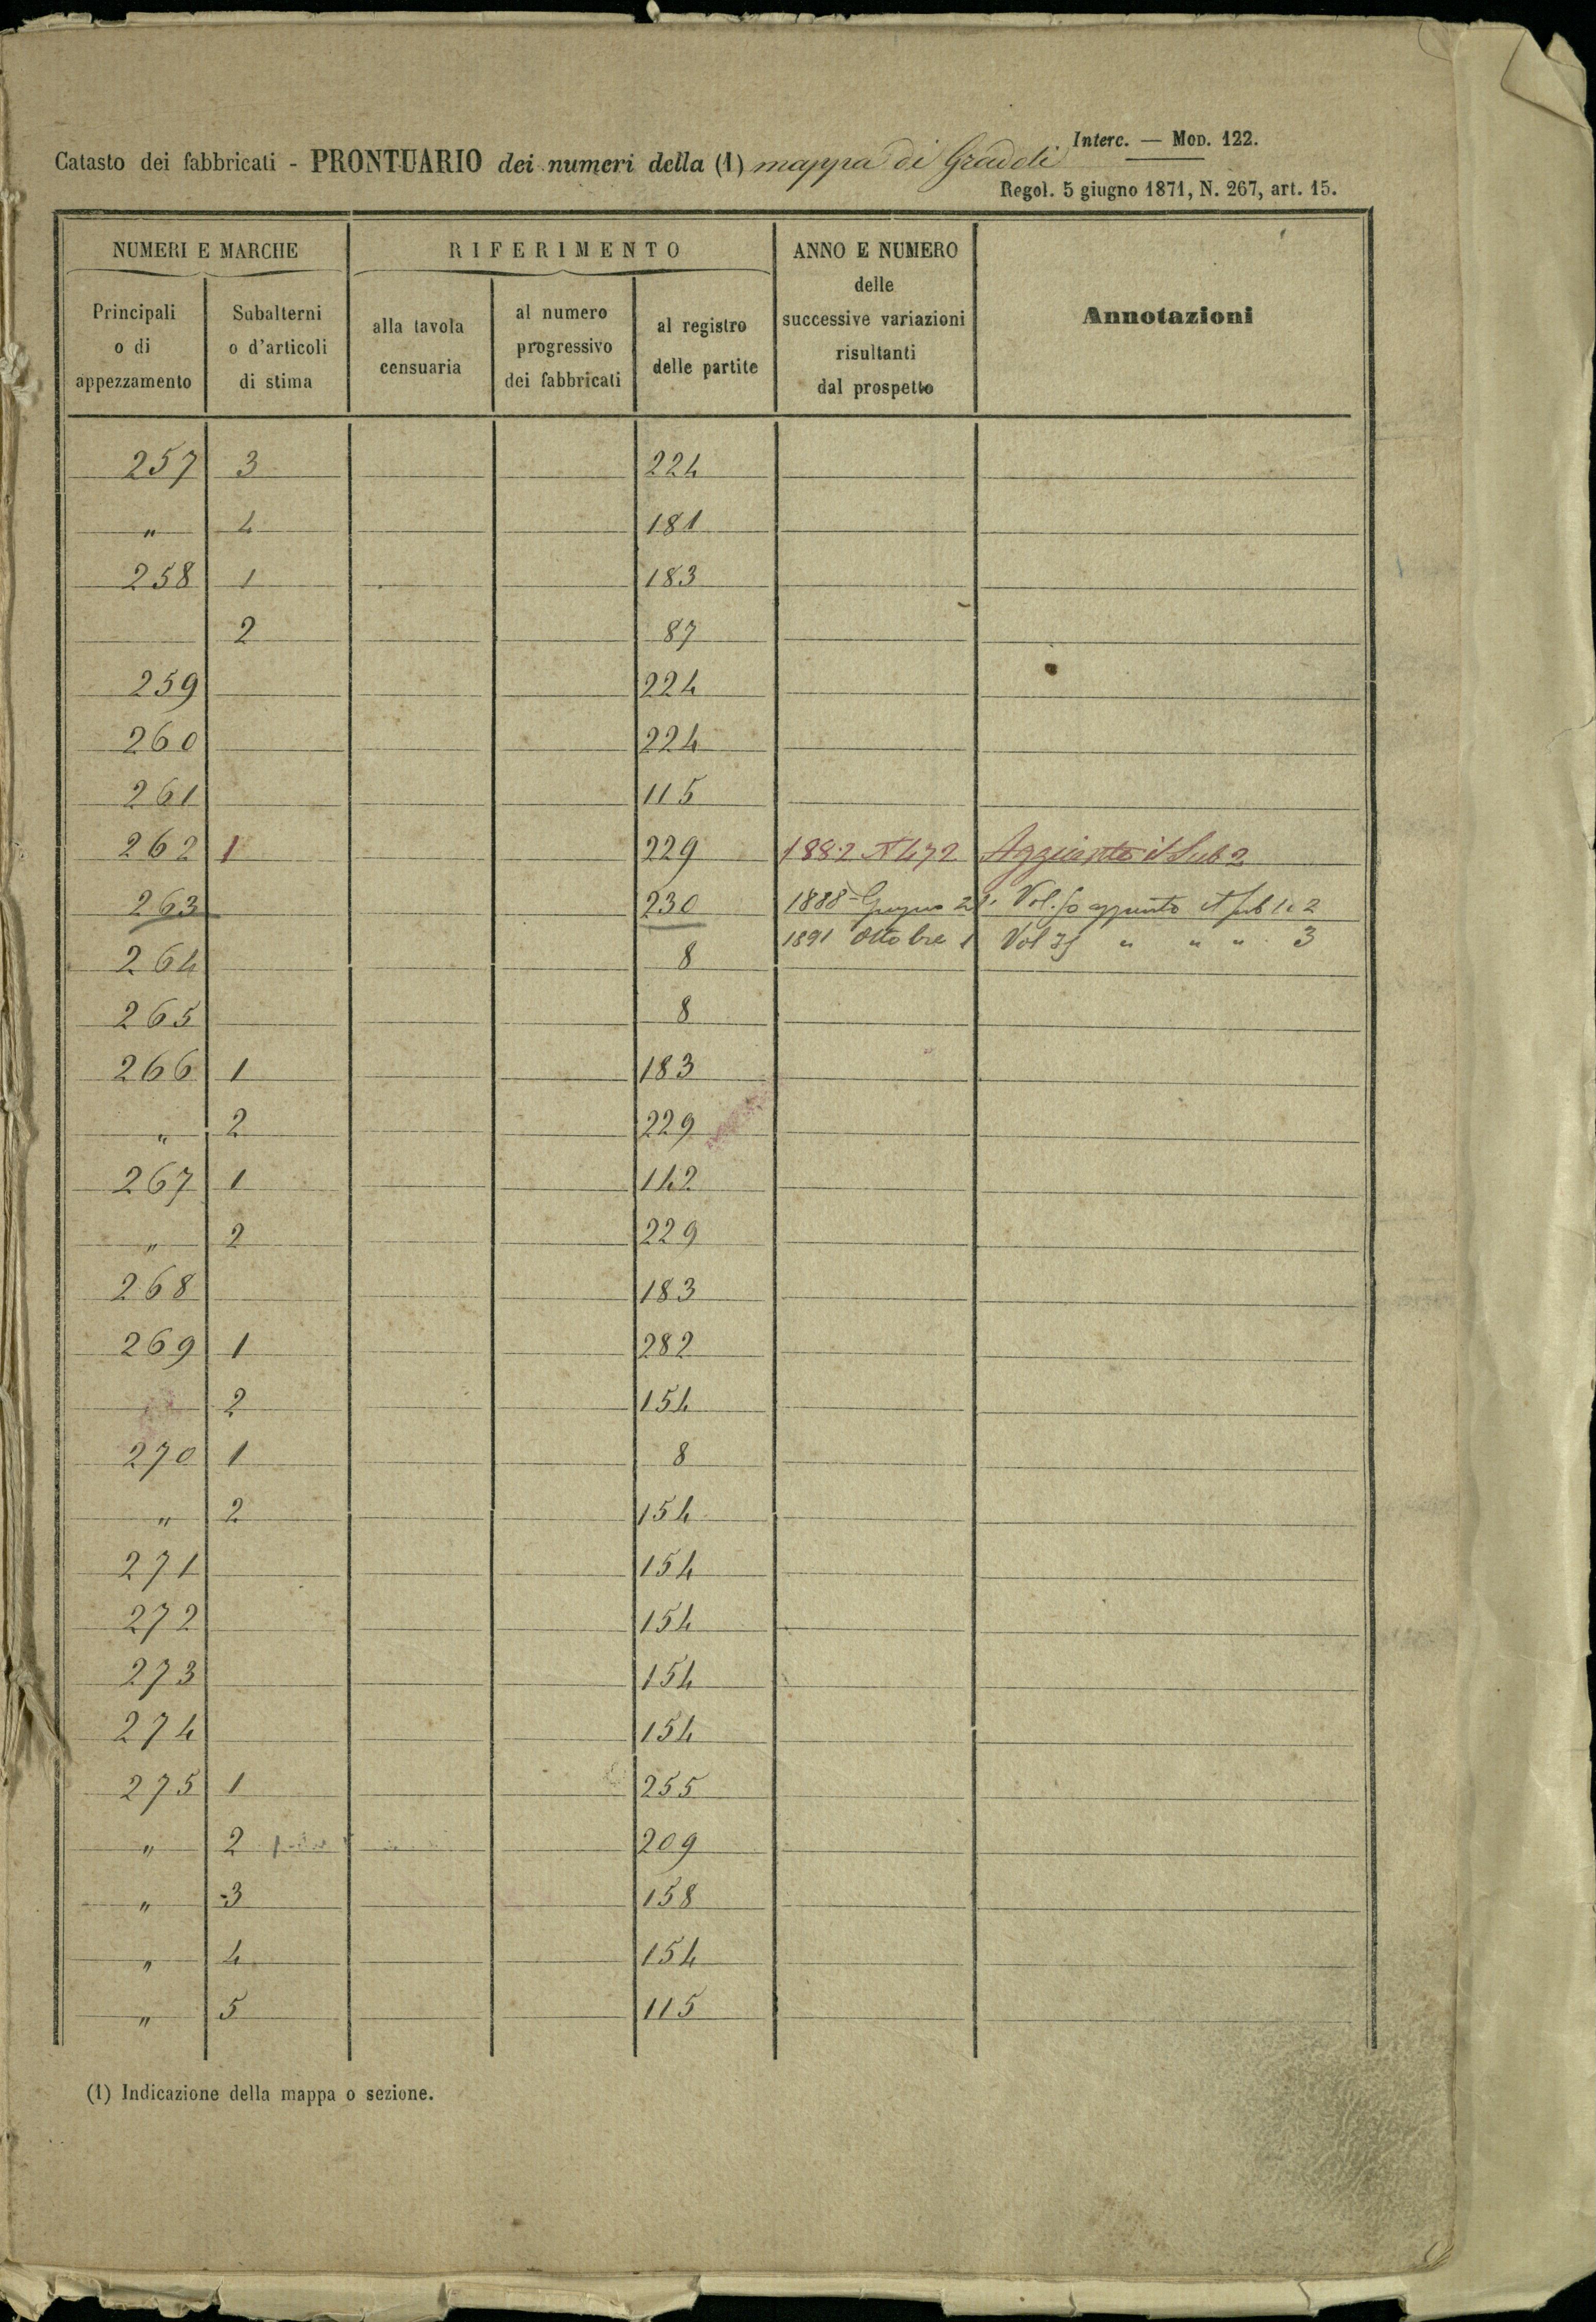 Interc. — Mod. 122.
Catasto dei fabbricati - PRONTUARIO dei numeri della (1) mappa di Gradoli
Regol. 5 giugno 1871, N. 267, art. 15.
NUMERI E MARCHE RIFERIMENTO ANNO E NUMERO delle successive variazioni risultanti dal prospetto Annotazioni
Principali o di appezzamento Subalterni o d'articoli di stima alla tavola censuaria al numero progressivo dei fabbricati al registro delle partite
257 3 224
" 4 181
258 1 183
2 87
259 224
260 224
261 115
262 1 229 1882 N 472 Aggiunto il Sub 2
263 230 1888 Giugno 21 Vol. fo aggiunto il sub 1e 2
264 8 1891 Ottobre 1 Vol " " " 3
265 8
266 1 183
" 2 229
267 1 142
" 2 229
268 183
269 1 282
2 154
270 1 8
" 2 154
271 154
272 154
273 154
274 154
275 1 255
" 2 209
" 3 158
" 4 154
" 5 115
(1) Indicazione della mappa o sezione.